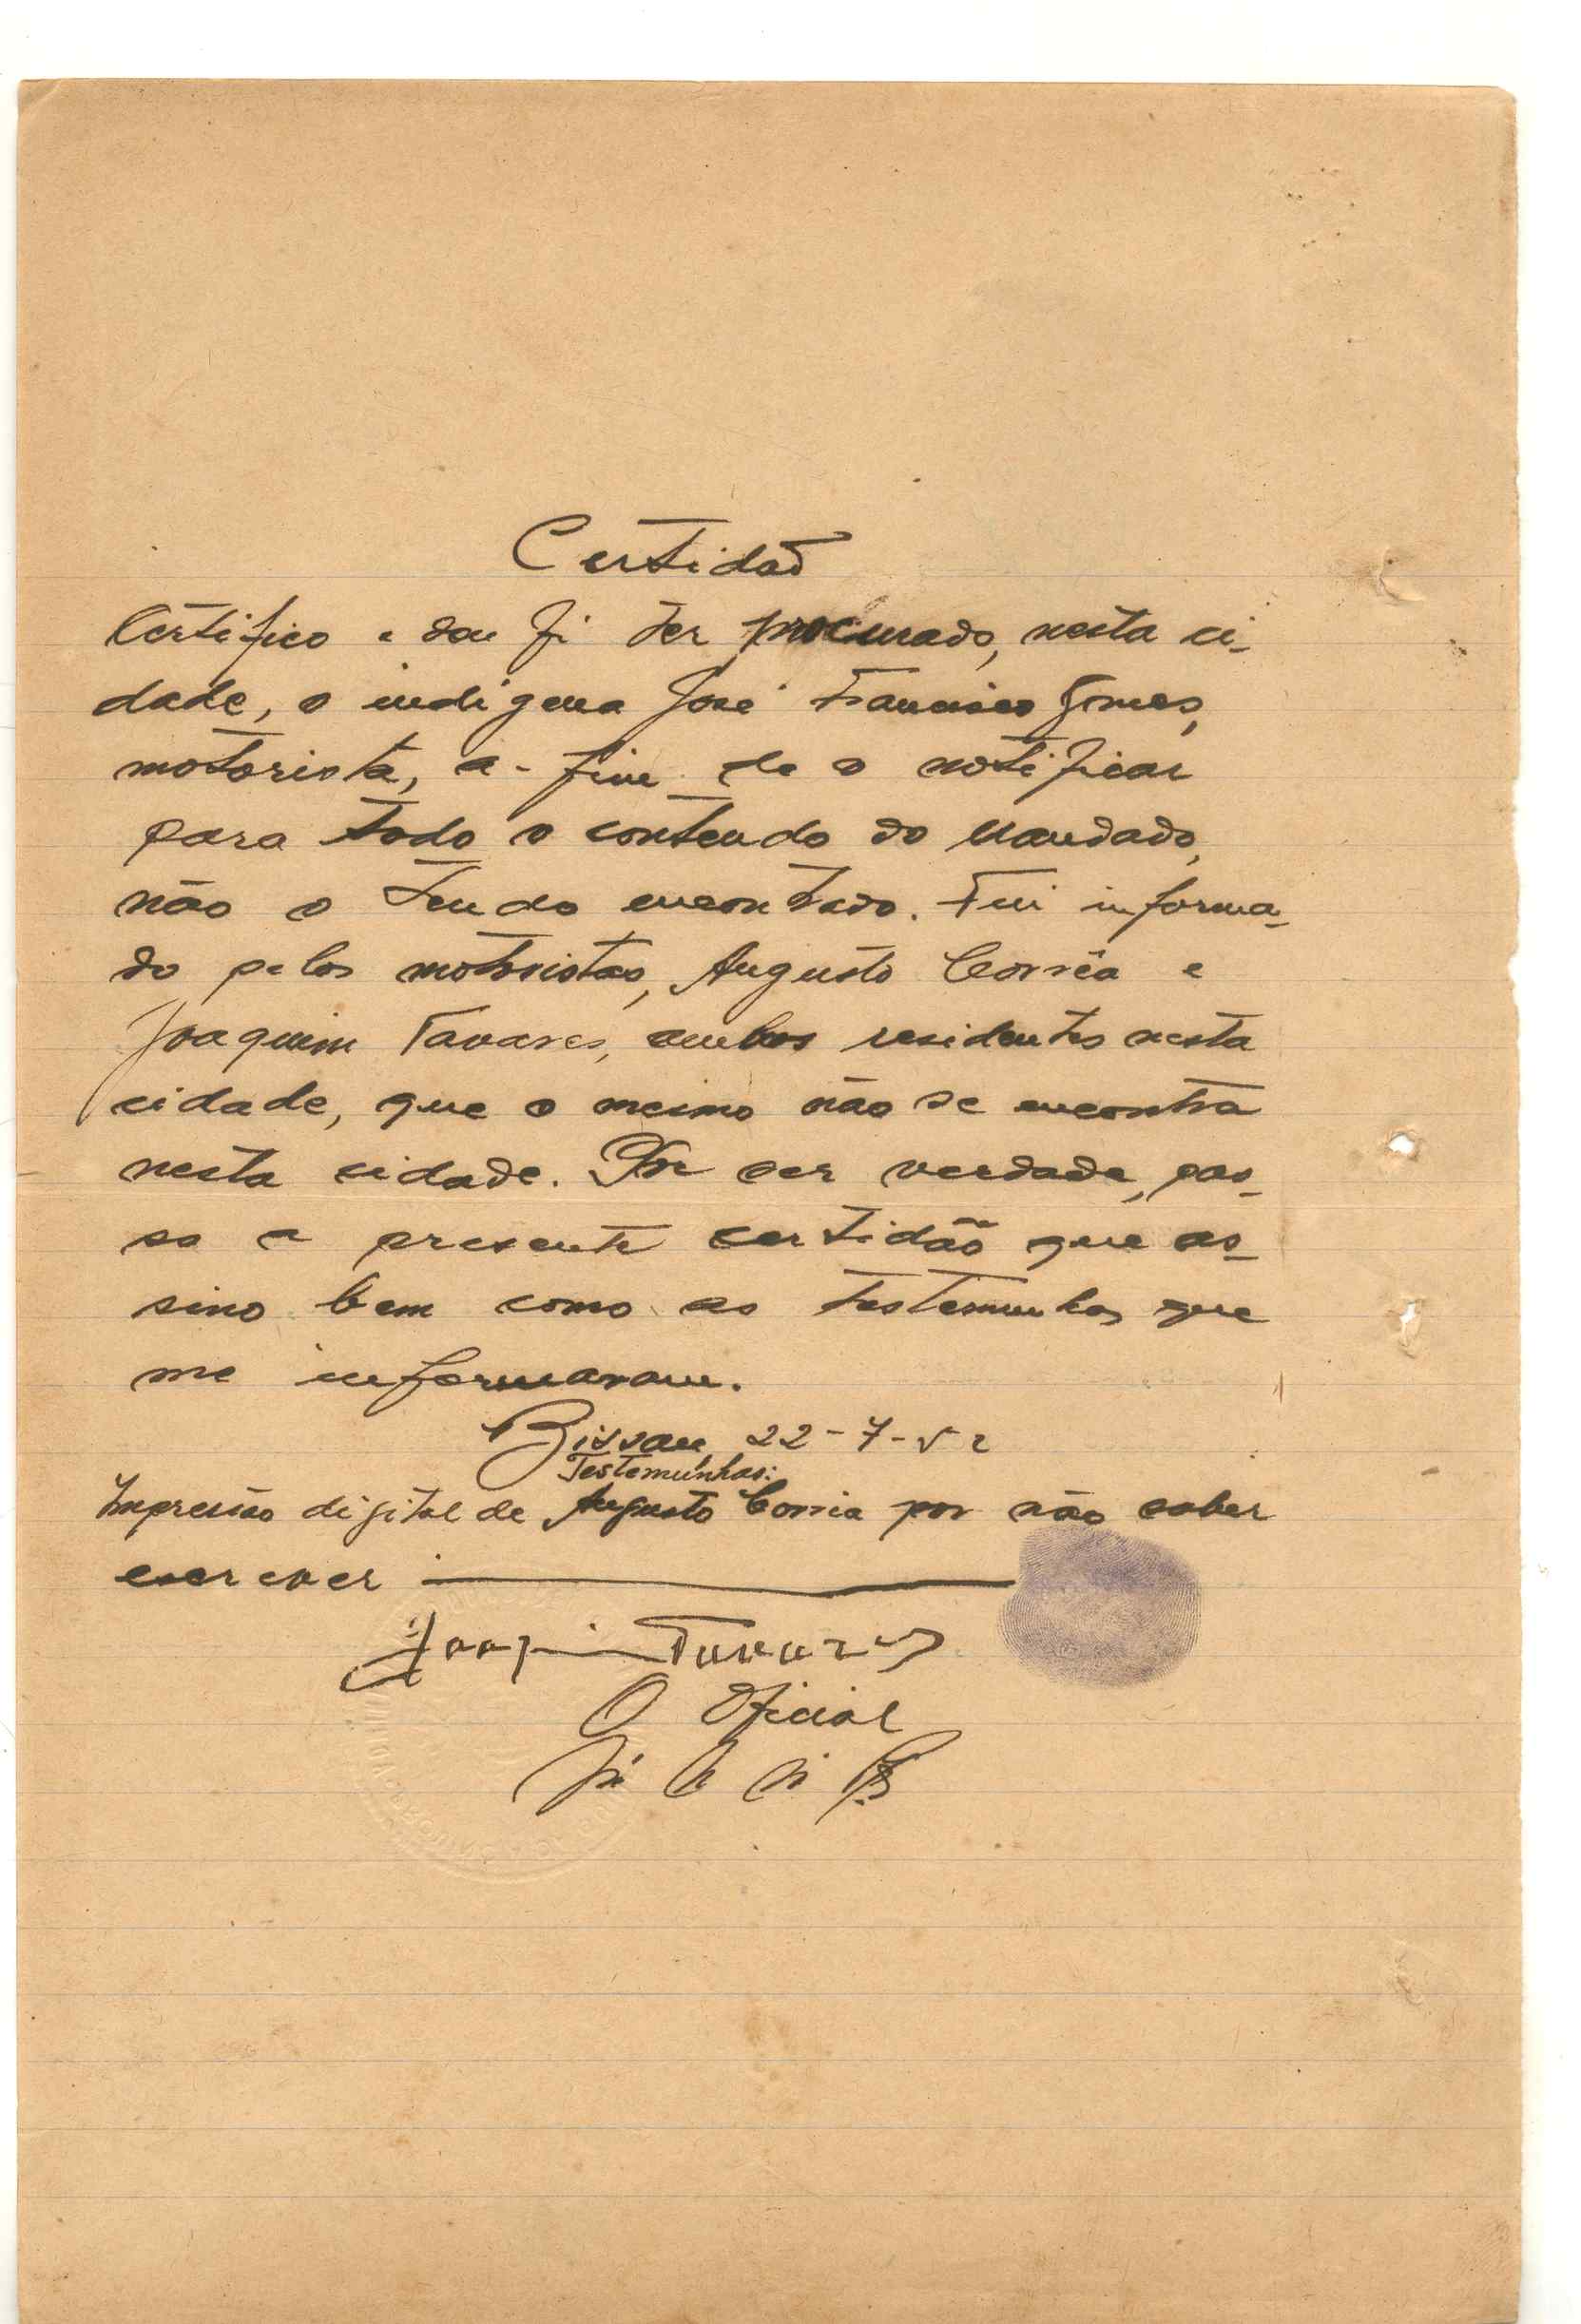 Certidão
Certifico e dou fé ter procurado, nesta ci-
dade, o indigena José Francisco Gomes,
motorista, a-fim de o notificar
para todo o conteudo do mandado,
não o tendo encontrado. Fui informa-
do pelos motoristas, Augusto Corrêa e
Joaquim Tavares, ambos residentes nesta
cidade, que o mesmo não se encontra
nesta cidade. Por ser verdade, pas-
so a presente certidão que as-
sino bem como as testemunhas que
me informaram.
Bissau, 22-7-52
Testemunhas:
Impressão digital de Augusto Correia por não saber
escrever
Joaquim Tavares
O Oficial